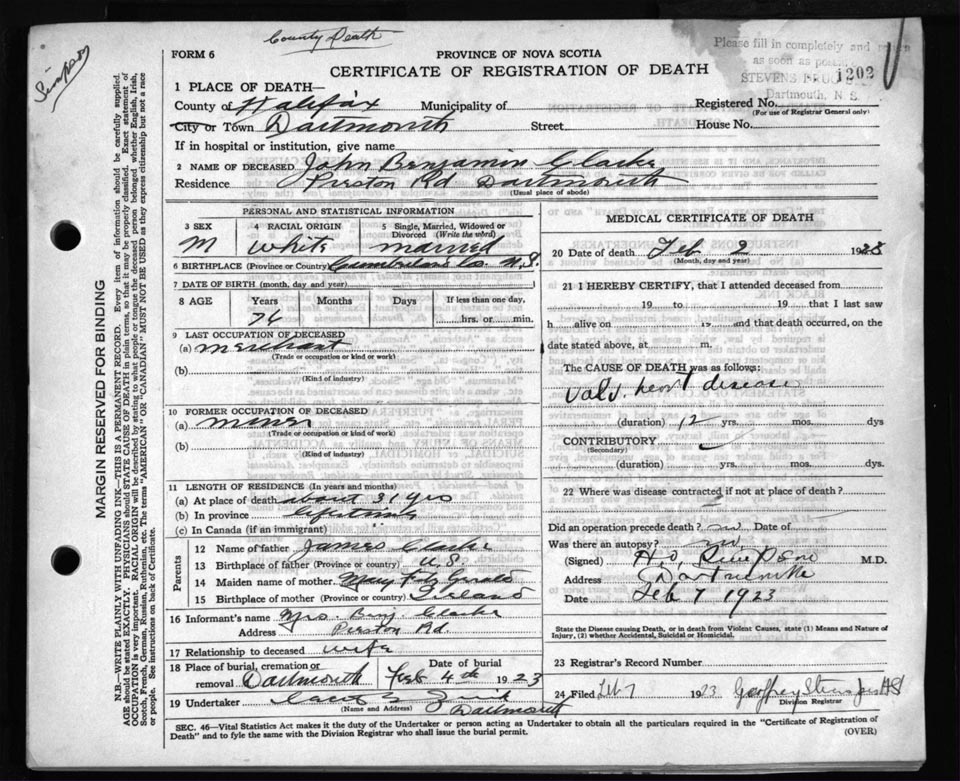 County Death
Simpson
FORM 6
PROVINCE OF NOVA SCOTIA
CERTIFICATE OF REGISTRATION OF DEATH
Please fill in completely and return
as soon as
STEVENS
Dartmouth, N. S.
1202
1 PLACE OF DEATH—
County of Halifax Municipality of
Registered No.
(For use of Registrar General only)
City or Town Dartmouth Street House No.
If in hospital or institution, give name
2 NAME OF DECEASED John Benjamin Clarke
Residence Preston Rd Dartmouth
(Usual place of abode)
PERSONAL AND STATISTICAL INFORMATION
3 SEX 4 RACIAL ORIGIN 5 Single, Married, Widowed or
Divorced (Write the word)
M White married
6 BIRTHPLACE (Province or Country) Cumberland Co. N.S.
7 DATE OF BIRTH (month, day and year)
8 AGE Years Months Days If less than one day,
76 hrs. or min.
9 LAST OCCUPATION OF DECEASED
(a) merchant
(Trade or occupation or kind or work)
(b)
(Kind of industry)
10 FORMER OCCUPATION OF DECEASED
(a) miner
(Trade or occupation or kind of work)
(b)
(Kind of industry)
11 LENGTH OF RESIDENCE (In years and months)
(a) At place of death about 31 yrs
(b) In province lifetime
(c) In Canada (if an immigrant)
Parents
12 Name of father James Clarke
13 Birthplace of father (Province or country)
14 Maiden name of mother Mary Fitz Gerald
15 Birthplace of mother (Province or country) Ireland
16 Informant's name Mrs. Benj Clarke
Address Preston Rd.
17 Relationship to deceased wife
18 Place of burial, cremation or Date of burial
removal Dartmouth Feb 4th 1923
19 Undertaker
(Name and Address) Dartmouth
MEDICAL CERTIFICATE OF DEATH
20 Date of death Feb 2 1923
(Month, day and year)
21 I HEREBY CERTIFY, that I attended deceased from
19 to 19 that I last saw
h alive on 19 and that death occurred, on the
date stated above, at m.
The CAUSE OF DEATH was as follows:
Valv. heart disease
(duration) 12 yrs. mos. dys
CONTRIBUTORY
(Secondary)
(duration) yrs. mos. dys.
22 Where was disease contracted if not at place of death?
Did an operation precede death? no Date of
Was there an autopsy? no
(Signed) M.D.
Address Dartmouth
Date Feb 7 1923
State the Disease causing Death, or in death from Violent Causes, state (1) Means and Nature of
Injury, (2) whether Accidental, Suicidal or Homicidal.
23 Registrar's Record Number
24 Filed Feb 7 1923
Division Registrar
SEC. 46—Vital Statistics Act makes it the duty of the Undertaker or person acting as Undertaker to obtain all the particulars required in the "Certificate of Registration of
Death" and to fyle the same with the Division Registrar who shall issue the burial permit.
(OVER)
MARGIN RESERVED FOR BINDING
N.B.—WRITE PLAINLY WITH UNFADING INK—THIS IS A PERMANENT RECORD. Every item of information should be carefully supplied.
AGE should be stated EXACTLY. PHYSICIANS should STATE CAUSE OF DEATH in plain terms, so that it may be properly classified. Exact statement of
OCCUPATION is very important. RACIAL ORIGIN will be described by stating to what people or tongue the deceased person belonged whether English, Irish,
Scotch, French, German, Russian, Ruthenian, etc. The terms "AMERICAN" or "CANADIAN" MUST NOT BE USED as they express citizenship but not a race
or people. See instructions on back of Certificate.